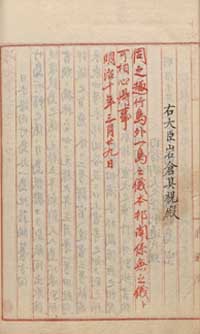 右大臣岩倉具視殿
伺之趣竹島外一嶋之儀本邦関係無之儀ト
可相心得事
明治十年三月廿九日